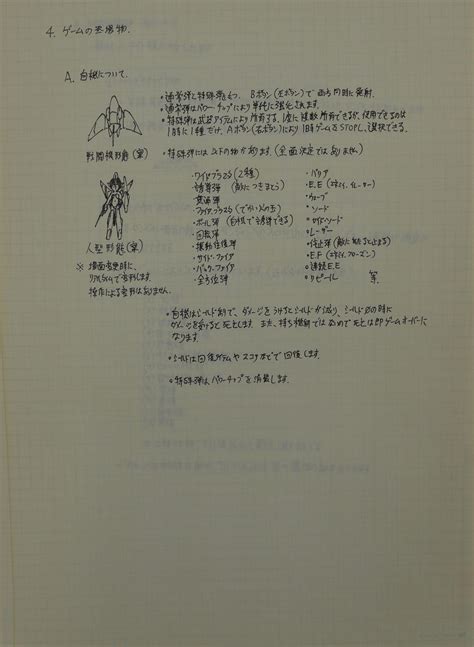 4. ゲームの登場物.
A. 自機について.
・通常弾と特殊弾をもつ. Bボタン(左ボタン)で両方同時に発射.
・通常弾はパワーチップにより単純に強化されます.
・特殊弾は武器アイテムにより所有する. 1度に複数所有できるが、使用できるのは
1時に1種だけ. Aボタン(右ボタン)により1時ゲームをSTOPし、選択できる.
戦闘機形態(案)
・特殊弾には以下の物があります.(全面決定ではありません)
・ワイドブラスター(2種)
・誘導弾 (敵につきまとう)
・貫通弾
・ファイヤブラスター(でかい火の玉)
・ボール弾 (自機で誘導できる)
・回転弾
・振動往復弾
・サイド・ファイア
・バック・ファイア
・全方位弾
・バリア
・E.E (エネミィ・イレーサー)
・ウェーブ
・ソード
・サイド・ソード
・レーザー
・停止弾 (敵にあたると止まる)
・E.F (エネミィ・フローズン)
・連鎖E.E
・リピール 等.
人型形態(案)
※ 場面変更時に、
リアルタイムで変形します.
操作による変形はありません.
・自機はシールド制で、ダメージをうけるとシールドが減り、シールド0の時に
ダメージを受けると死とします. また、持ち機制ではないので死とは即ゲームオーバーに
なります.
・シールドは回復アイテムやスコアなどで回復します.
・特殊弾はパワーチップを消費します.